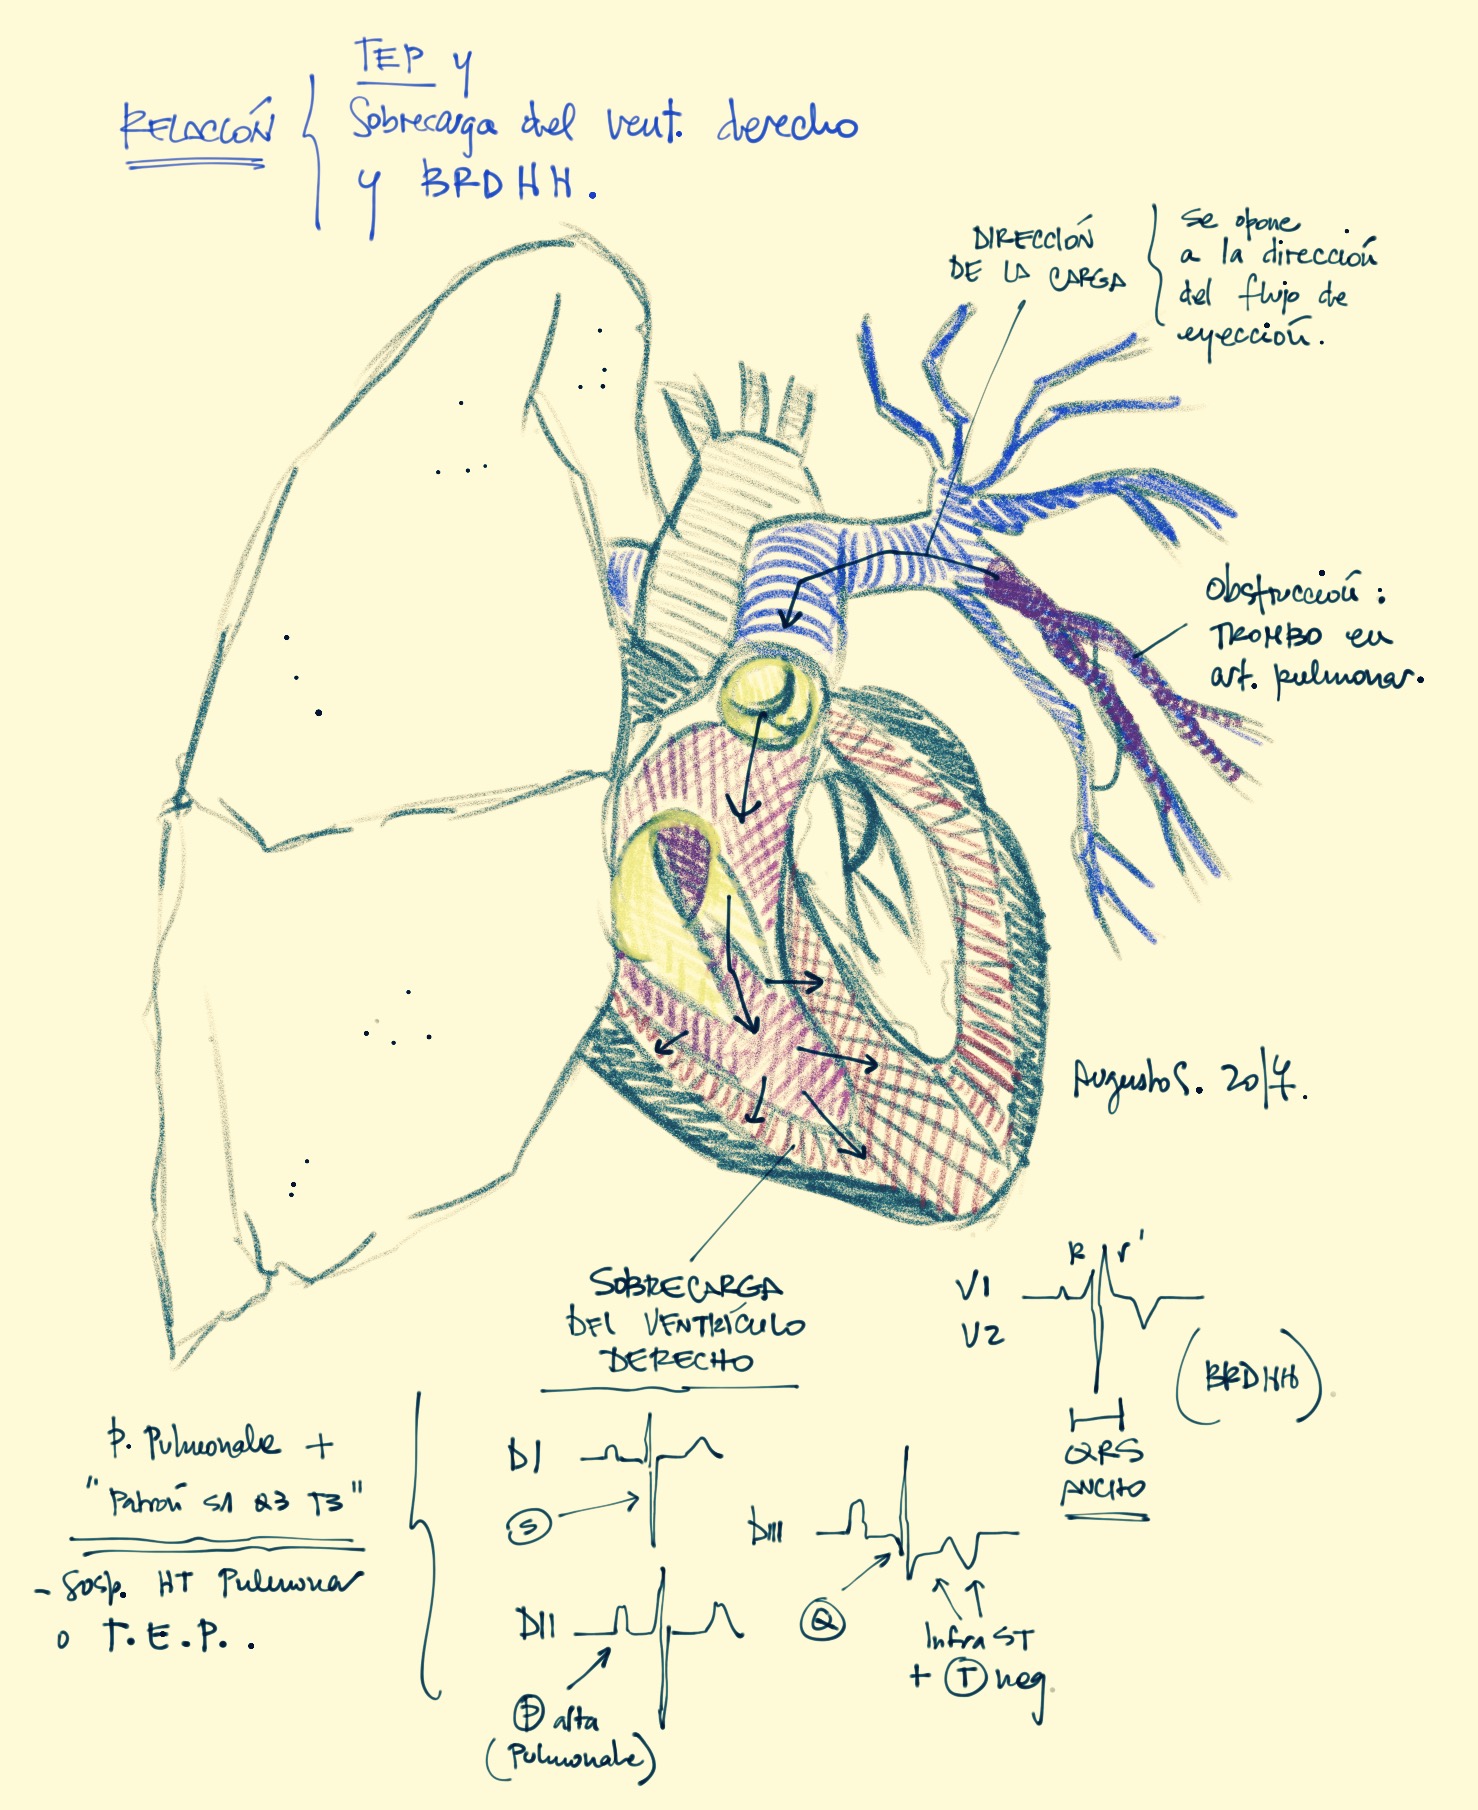 RELACIÓN
TEP y
Sobrecarga del vent. derecho
y BRDHH.
DIRECCIÓN
DE LA CARGA
se opone
a la dirección
del flujo de
eyección.
Obstrucción:
TROMBO en
art. pulmonar.
Augusto S. 2017.
SOBRECARGA
DEL VENTRÍCULO
DERECHO
V1
V2
R r'
(BRDHH).
QRS
ANCHO
P. Pulmonale +
"Patrón S1 Q3 T3"
- Sosp. HT Pulmonar
o T.E.P..
DI
S
DII
P alta
(Pulmonale)
DIII
Q
Infra ST
+ T neg.